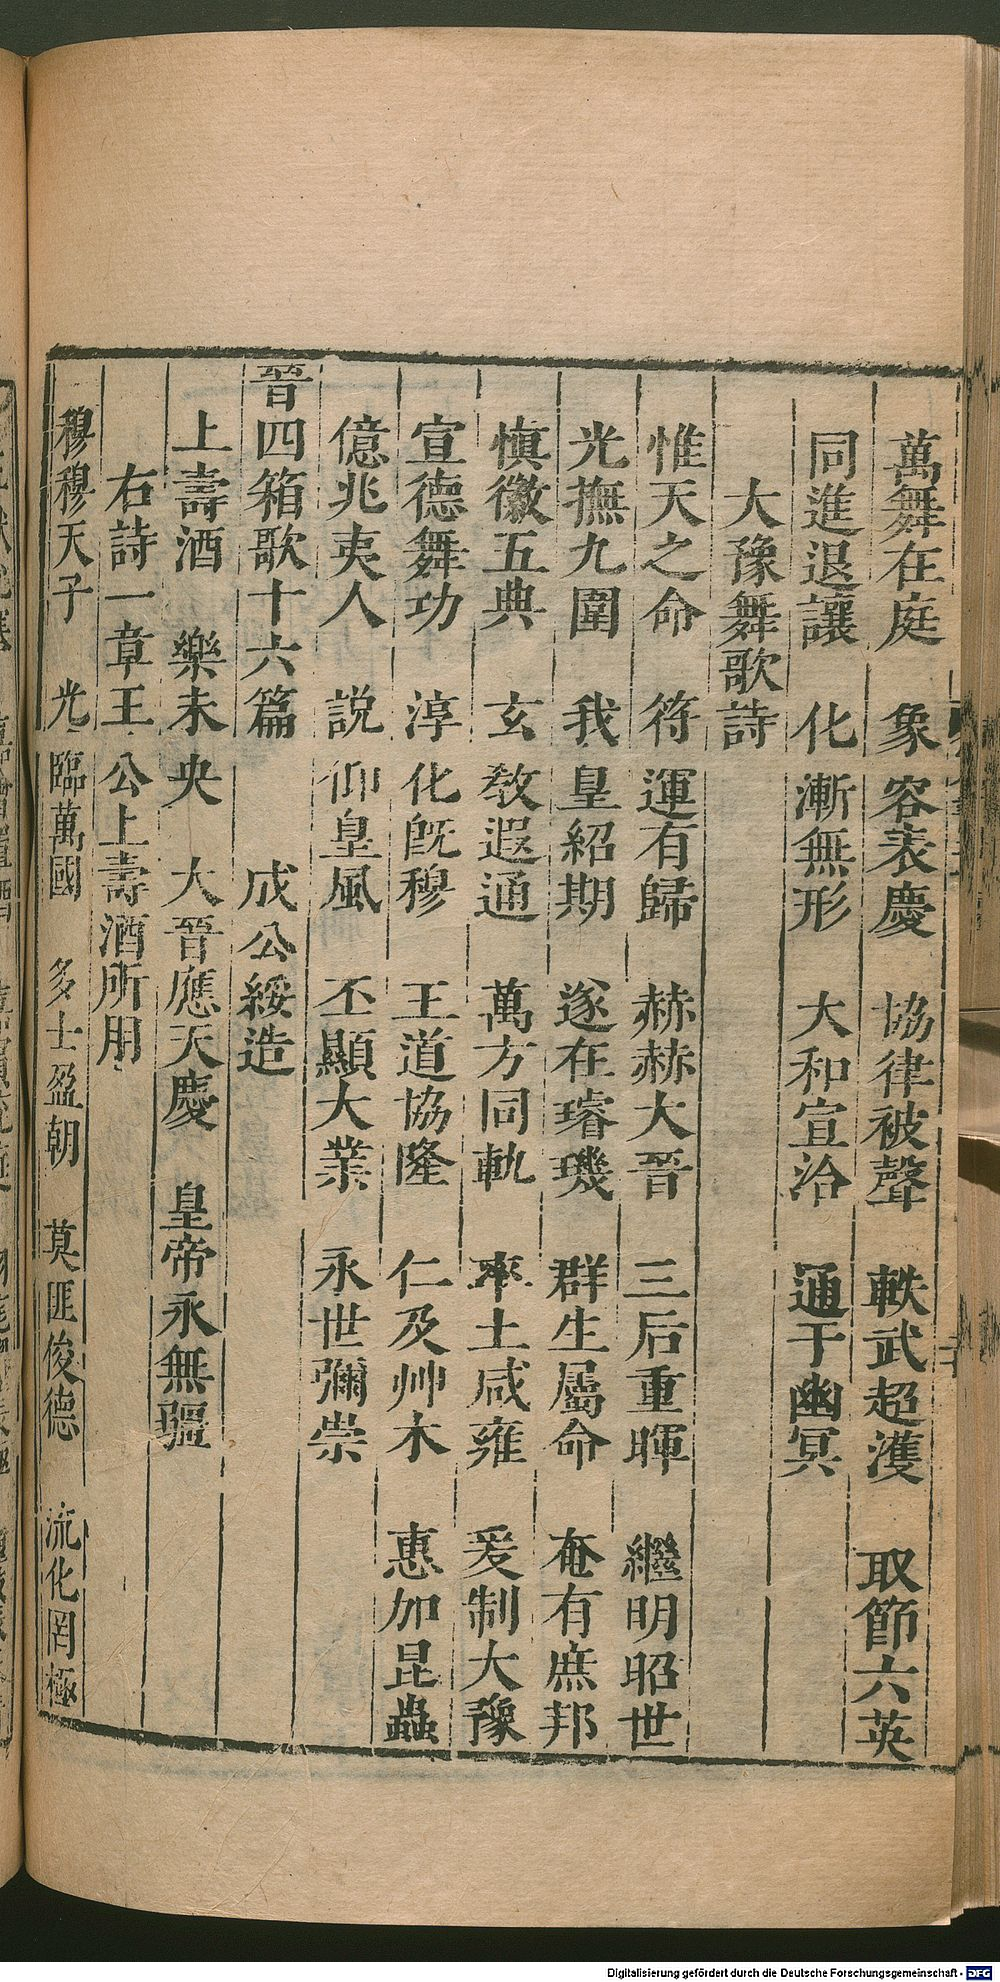 萬舞在庭　象容表慶　協律被聲　軼武超濩　取節六英
同進退讓　化漸無形　大和宣洽　通于幽冥
大豫舞歌詩
惟天之命　符運有歸　赫赫大晉　三后重暉　繼明昭世
光撫九圍　我皇紹期　遂在璿璣　群生屬命　奄有庶邦
慎徽五典　玄教遐通　萬方同軌　率土咸雍　爰制大豫
宣德舞功　淳化既穆　王道協隆　仁及艸木　惠加昆蟲
億兆夷人　說仰皇風　丕顯大業　永世彌崇
晉四箱歌十六篇　成公綏造
上壽酒　樂未央　大晉應天慶　皇帝永無疆
右詩一章王公上壽酒所用
穆穆天子　光臨萬國　多士盈朝　莫匪俊德　流化罔極
Digitalisierung gefördert durch die Deutsche Forschungsgemeinschaft - DFG